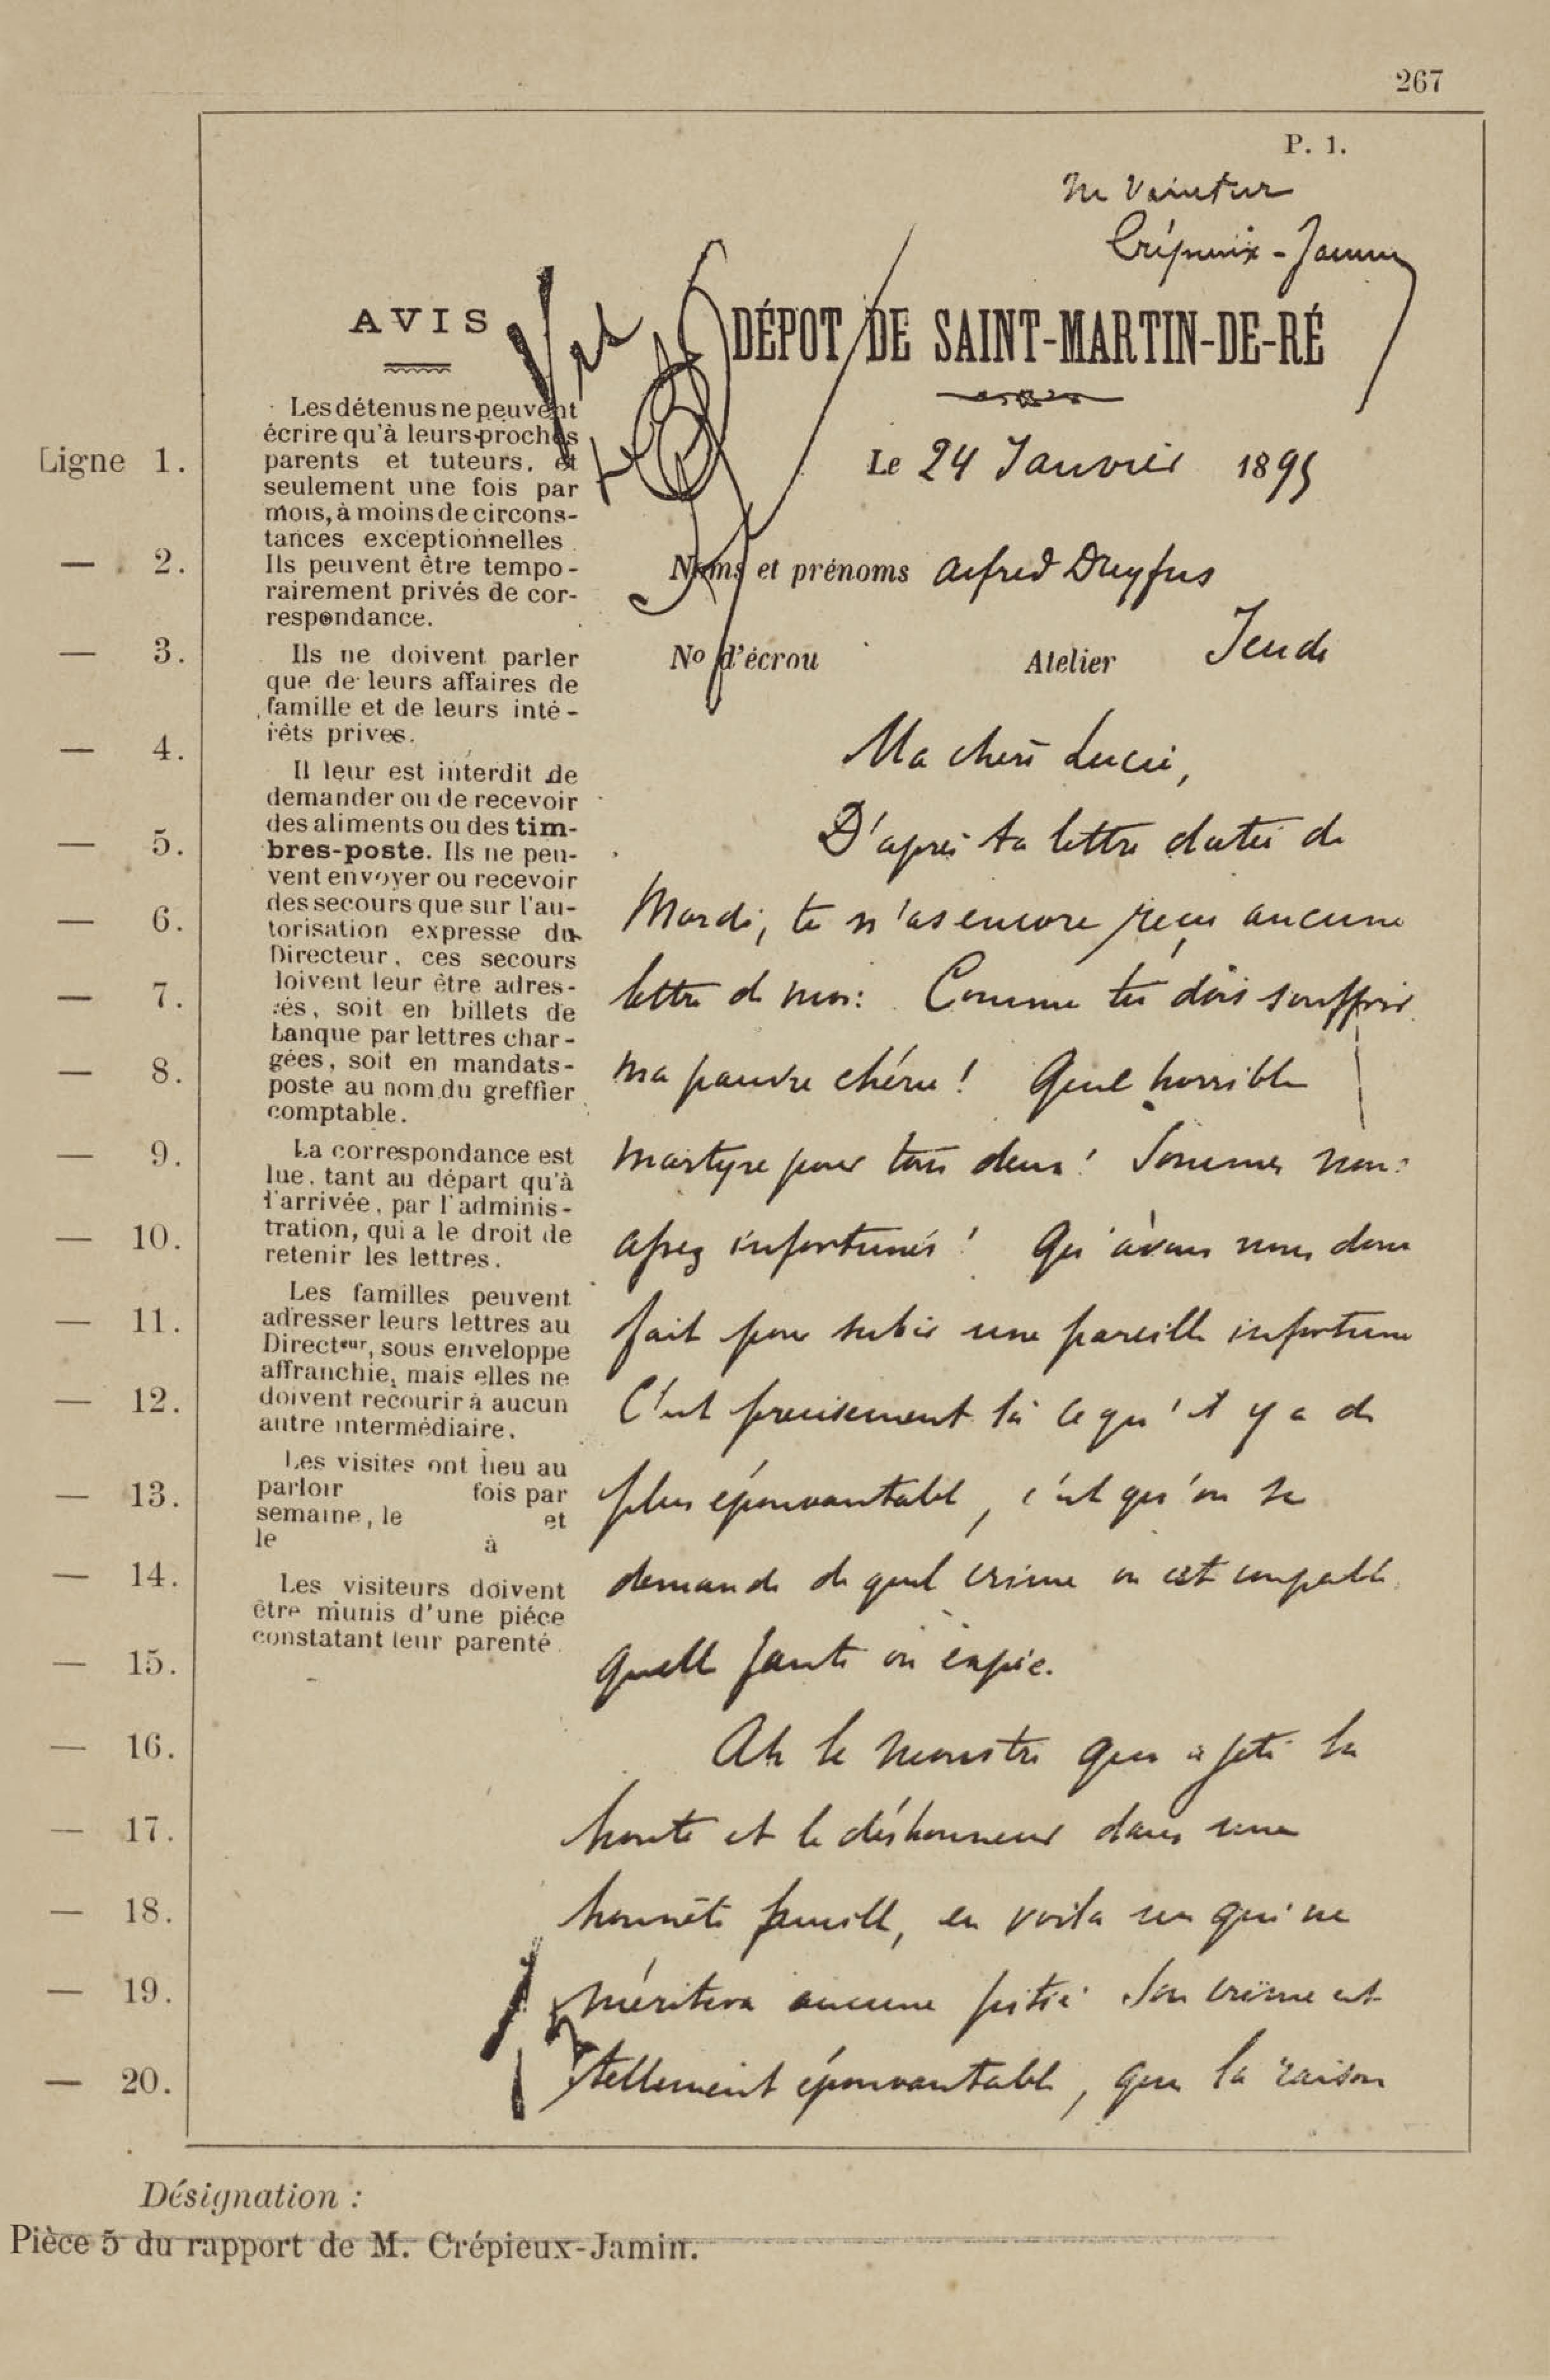 267
P. 1.
Crépieux-Jamin
Vu
AVIS
DÉPOT DE SAINT-MARTIN-DE-RÉ
Les détenus ne peuvent
écrire qu'à leurs proches
parents et tuteurs, et
seulement une fois par
mois, à moins de circons-
tances exceptionnelles
Ils peuvent être tempo-
rairement privés de cor-
respondance.
Ils ne doivent parler
que de leurs affaires de
famille et de leurs inté-
rêts privés.
Il leur est interdit de
demander ou de recevoir
des aliments ou des tim-
bres-poste. Ils ne peu-
vent envoyer ou recevoir
des secours que sur l'au-
torisation expresse du
Directeur, ces secours
doivent leur être adres-
sés, soit en billets de
banque par lettres char-
gées, soit en mandats-
poste au nom du greffier
comptable.
La correspondance est
lue, tant au départ qu'à
l'arrivée, par l'adminis-
tration, qui a le droit de
retenir les lettres.
Les familles peuvent
adresser leurs lettres au
Directeur, sous enveloppe
affranchie, mais elles ne
doivent recourir à aucun
autre intermédiaire.
Les visites ont lieu au
parloir fois par
semaine, le et
le à
Les visiteurs doivent
être munis d'une piéce
constatant leur parenté.
Ligne 1. Le 24 Janvier 1895
— 2. Noms et prénoms Alfred Dreyfus
— 3. No d'écrou Atelier Jeudi
— 4. Ma chère Lucie,
— 5. D'après ta lettre datée de
— 6. Mardi, tu n'as encore reçu aucune
— 7. lettre de moi. Comme tu dois souffrir
— 8. ma pauvre chérie! Quel horrible
— 9. martyre pour tous deux! Sommes nous
— 10. assez infortunés! Qu'avons nous donc
— 11. fait pour subir une pareille infortune
— 12. C'est precisement là ce qu'il y a de
— 13. plus épouvantable, c'est qu'on se
— 14. demande de quel crime on est coupable
— 15. quelle faute on expie.
— 16. Ah le monstre qui a jeté la
— 17. honte et le déshonneur dans une
— 18. honnête famille, en voila un qui ne
— 19. méritera aucune pitié. Son crime est
— 20. tellement épouvantable, que la raison
Désignation :
Pièce 5 du rapport de M. Crépieux-Jamin.